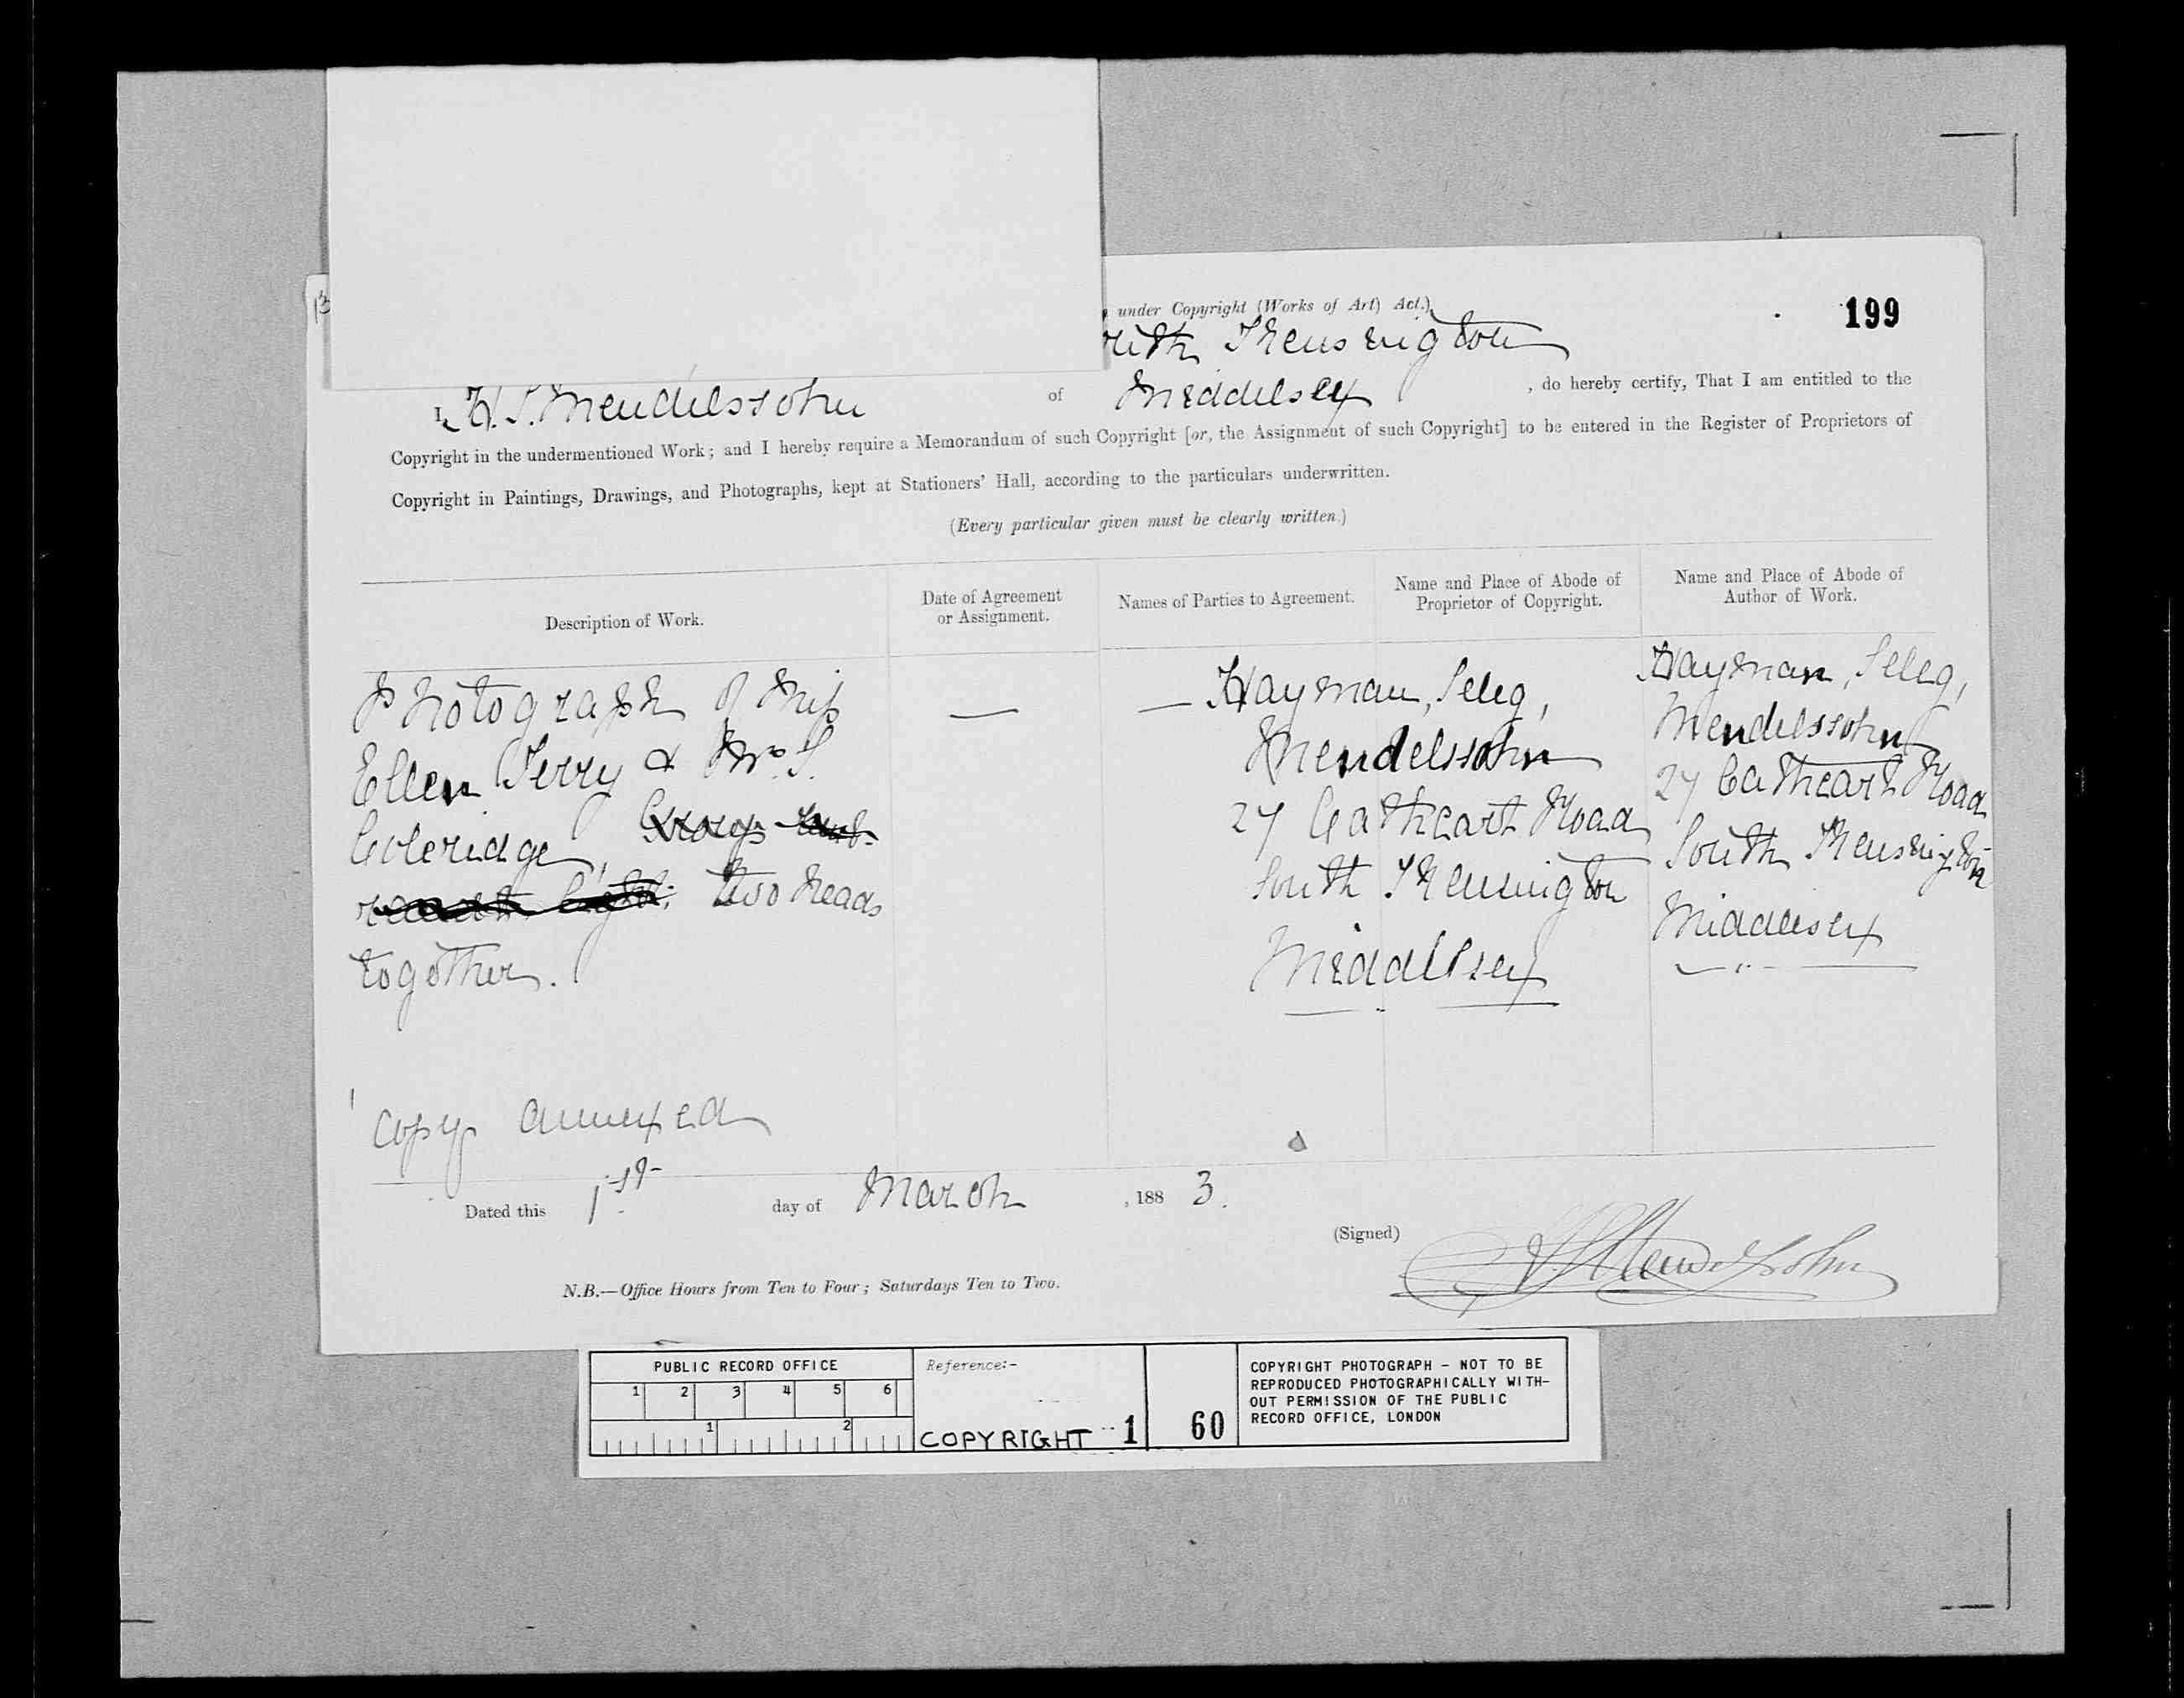 under Copyright (Works of Art) Act.)
199
Kensington
I, H. S. Mendelssohn of Middelsex, do hereby certify, That I am entitled to the
Copyright in the undermentioned Work; and I hereby require a Memorandum of such Copyright [or, the Assignment of such Copyright] to be entered in the Register of Proprietors of
Copyright in Paintings, Drawings, and Photographs, kept at Stationers' Hall, according to the particulars underwritten.
(Every particular given must be clearly written.)
Description of Work.
Date of Agreement
or Assignment.
Names of Parties to Agreement.
Name and Place of Abode of
Proprietor of Copyright.
Name and Place of Abode of
Author of Work.
Photograph of Miss
Ellen Terry &
Coleridge,
two heads
together.
copy annexed
—
— Hayman, Seleg,
Mendelssohn
27 Cathcart Road
South Kensington
Middelsex
Hayman, Seleg,
Mendelssohn
27 Cathcart Road
South Kensington
Middlesex
Dated this 1st day of March, 1883.
(Signed) H S Mendelssohn
N.B.—Office Hours from Ten to Four; Saturdays Ten to Two.
PUBLIC RECORD OFFICE
1 2 3 4 5 6
1 2
Reference:-
COPYRIGHT 1
60
COPYRIGHT PHOTOGRAPH - NOT TO BE
REPRODUCED PHOTOGRAPHICALLY WITH-
OUT PERMISSION OF THE PUBLIC
RECORD OFFICE, LONDON